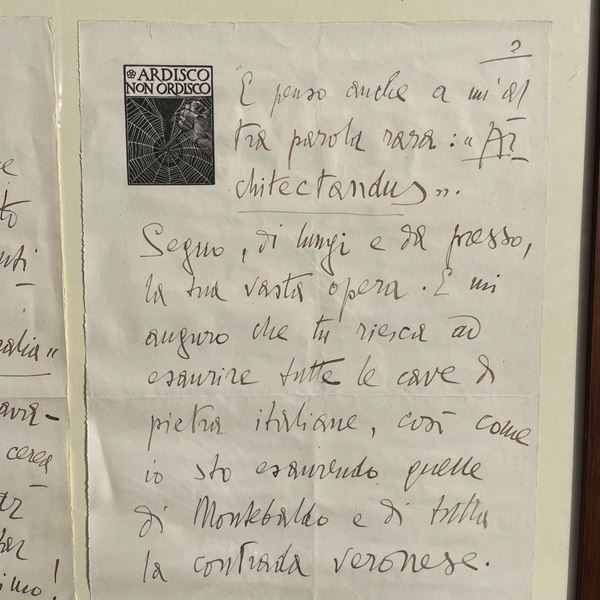 e
to
nti
ralia"
avra-
cerea
tr
tar
simo!
2
ARDISCO
NON ORDISCO
E penso anche a un'al
tra parola rara: «Ar
chitectandus».
Seguo, di lungi e da presso,
la tua vasta opera. E mi
auguro che tu riesca ad
esaurire tutte le cave di
pietra italiane, così come
io sto esaurendo quelle
di Montebaldo e di tutta
la contrada veronese.